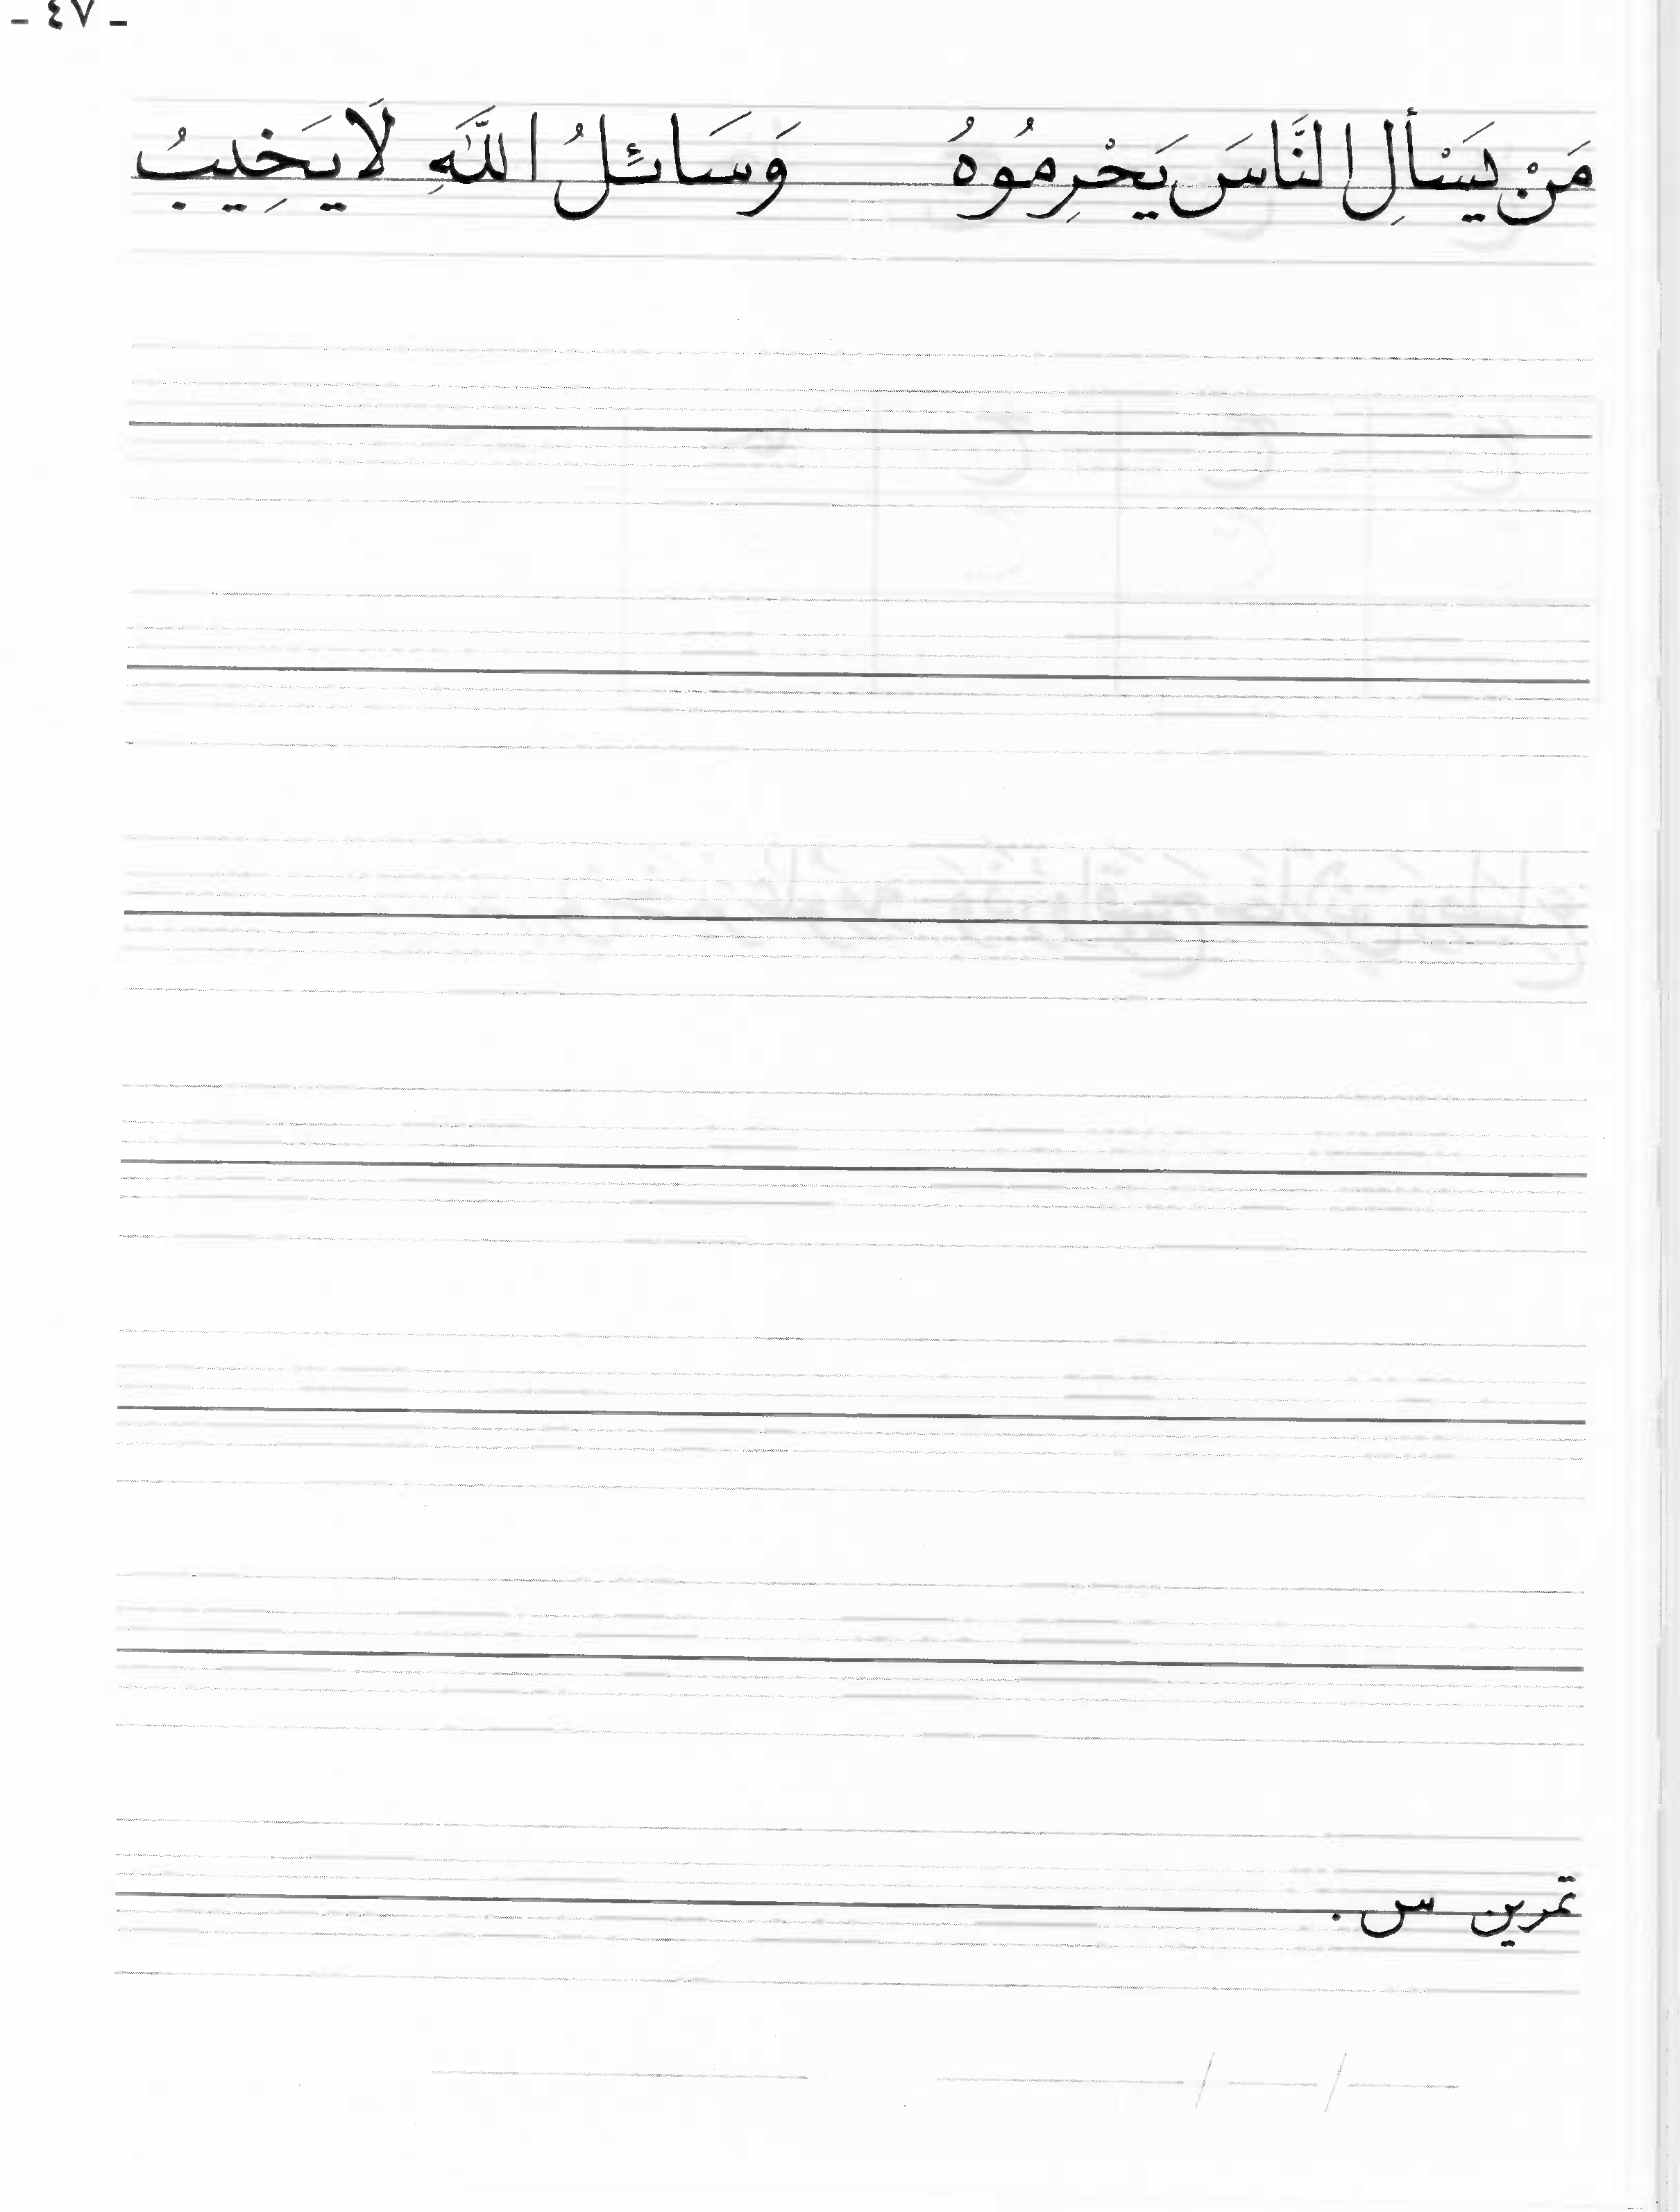 - ٤٧ -
مَنْ يَسْأَلِ النَّاسَ يَحْرِمُوهُ وَسَائِلُ اللَّهِ لَا يَخِيبُ
تمرين س .